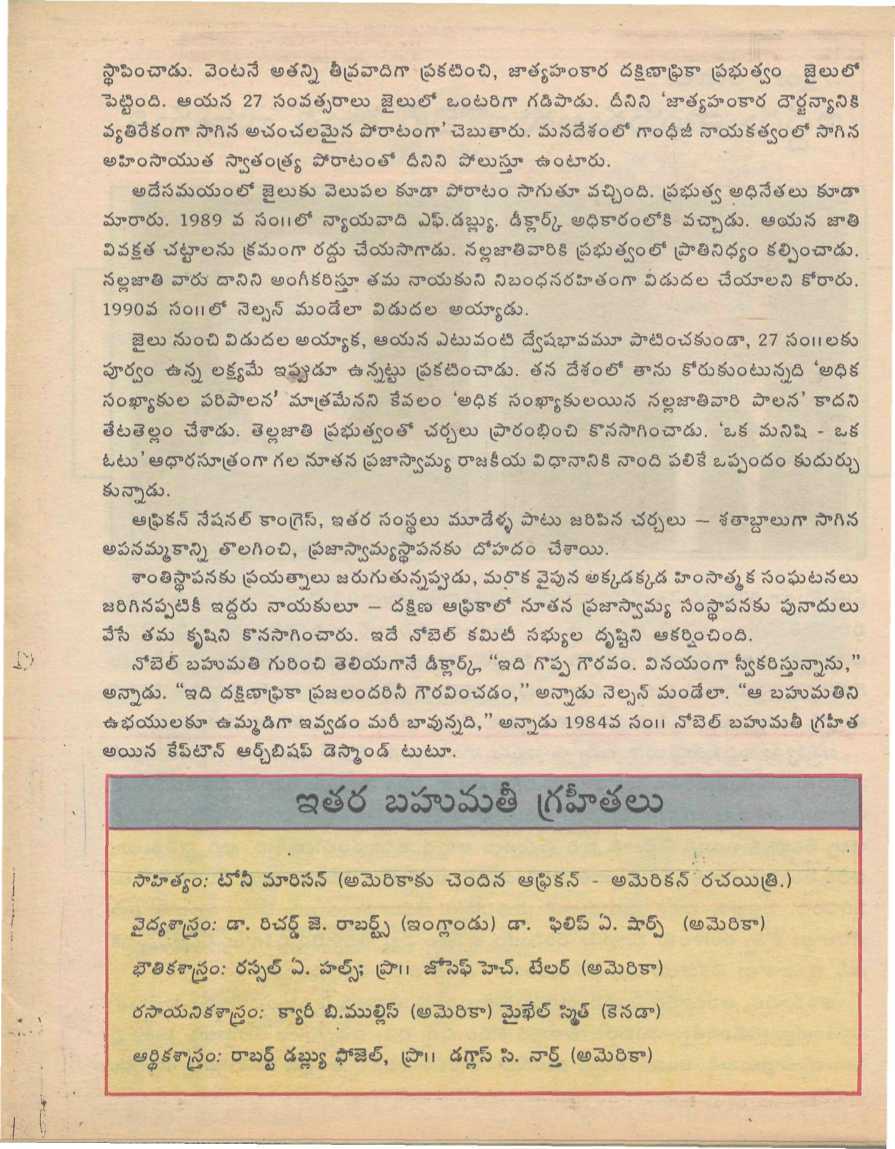 స్థాపించాడు. వెంటనే అతన్ని తీవ్రవాదిగా ప్రకటించి, జాత్యహంకార దక్షిణాఫ్రికా ప్రభుత్వం జైలులో
పెట్టింది. ఆయన 27 సంవత్సరాలు జైలులో ఒంటరిగా గడిపాడు. దీనిని ‘జాత్యహంకార దౌర్జన్యానికి
వ్యతిరేకంగా సాగిన అచంచలమైన పోరాటంగా’ చెబుతారు. మనదేశంలో గాంధీజీ నాయకత్వంలో సాగిన
అహింసాయుత స్వాతంత్ర్య పోరాటంతో దీనిని పోలుస్తూ ఉంటారు.
అదేసమయంలో జైలుకు వెలుపల కూడా పోరాటం సాగుతూ వచ్చింది. ప్రభుత్వ అధినేతలు కూడా
మారారు. 1989 వ సం॥లో న్యాయవాది ఎఫ్.డబ్ల్యు. డీక్లార్క్ అధికారంలోకి వచ్చాడు. ఆయన జాతి
వివక్షత చట్టాలను క్రమంగా రద్దు చేయసాగాడు. నల్లజాతివారికి ప్రభుత్వంలో ప్రాతినిధ్యం కల్పించాడు.
నల్లజాతి వారు దానిని అంగీకరిస్తూ తమ నాయకుని నిబంధనరహితంగా విడుదల చేయాలని కోరారు.
1990వ సం॥లో నెల్సన్ మండేలా విడుదల అయ్యాడు.
జైలు నుంచి విడుదల అయ్యాక, ఆయన ఎటువంటి ద్వేషభావమూ పాటించకుండా, 27 సం॥లకు
పూర్వం ఉన్న లక్ష్యమే ఇప్పుడూ ఉన్నట్టు ప్రకటించాడు. తన దేశంలో తాను కోరుకుంటున్నది ‘అధిక
సంఖ్యాకుల పరిపాలన’ మాత్రమేనని కేవలం ‘అధిక సంఖ్యాకులయిన నల్లజాతివారి పాలన’ కాదని
తేటతెల్లం చేశాడు. తెల్లజాతి ప్రభుత్వంతో చర్చలు ప్రారంభించి కొనసాగించాడు. ‘ఒక మనిషి - ఒక
ఓటు’ ఆధారసూత్రంగా గల నూతన ప్రజాస్వామ్య రాజకీయ విధానానికి నాంది పలికే ఒప్పందం కుదుర్చు
కున్నాడు.
ఆఫ్రికన్ నేషనల్ కాంగ్రెస్, ఇతర సంస్థలు మూడేళ్ళ పాటు జరిపిన చర్చలు — శతాబ్దాలుగా సాగిన
అపనమ్మకాన్ని తొలగించి, ప్రజాస్వామ్యస్థాపనకు దోహదం చేశాయి.
శాంతిస్థాపనకు ప్రయత్నాలు జరుగుతున్నప్పుడు, మరొక వైపున అక్కడక్కడ హింసాత్మక సంఘటనలు
జరిగినప్పటికీ ఇద్దరు నాయకులూ — దక్షిణ ఆఫ్రికాలో నూతన ప్రజాస్వామ్య సంస్థాపనకు పునాదులు
వేసే తమ కృషిని కొనసాగించారు. ఇదే నోబెల్ కమిటీ సభ్యుల దృష్టిని ఆకర్షించింది.
నోబెల్ బహుమతి గురించి తెలియగానే డీక్లార్క్, “ఇది గొప్ప గౌరవం. వినయంగా స్వీకరిస్తున్నాను,”
అన్నాడు. “ఇది దక్షిణాఫ్రికా ప్రజలందరినీ గౌరవించడం,” అన్నాడు నెల్సన్ మండేలా. “ఆ బహుమతిని
ఉభయులకూ ఉమ్మడిగా ఇవ్వడం మరీ బావున్నది,” అన్నాడు 1984వ సం॥ నోబెల్ బహుమతీ గ్రహీత
అయిన కేప్‌టౌన్ ఆర్చ్‌బిషప్ డెస్మాండ్ టుటూ.
ఇతర బహుమతీ గ్రహీతలు
సాహిత్యం: టోనీ మారిసన్ (అమెరికాకు చెందిన ఆఫ్రికన్ - అమెరికన్ రచయిత్రి.)
వైద్యశాస్త్రం: డా. రిచర్డ్ జె. రాబర్ట్స్ (ఇంగ్లాండు) డా. ఫిలిప్ ఏ. షార్ప్ (అమెరికా)
భౌతికశాస్త్రం: రస్సల్ ఏ. హల్స్; ప్రొ॥ జోసెఫ్ హెచ్. టేలర్ (అమెరికా)
రసాయనికశాస్త్రం: క్యారీ బి.ముల్లిస్ (అమెరికా) మైఖేల్ స్మిత్ (కెనడా)
ఆర్థికశాస్త్రం: రాబర్ట్ డబ్ల్యు ఫోజెల్, ప్రొ॥ డగ్లాస్ సి. నార్త్ (అమెరికా)